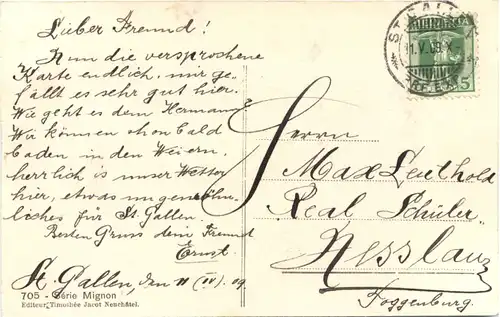 Lieber Freund!
Nun die versprochene
Karte endlich, mir ge-
fällt es sehr gut hier.
Wie geht es dem Hermann?
Wir können schon bald
baden in den Weiern,
herrlich is unser Wetter
hier, etwas ungewöhn-
liches für St. Gallen.
Besten Gruss dein Freund
Ernst.
St. Gallen, den 11 09.
705 - Série Mignon
Editeur Timothée Jacot Neuchâtel.
ST. GALLEN
11. V. 09. X-
5
Herrn
Max Leuthold
Real Schüler
Nesslau
Toggenburg.